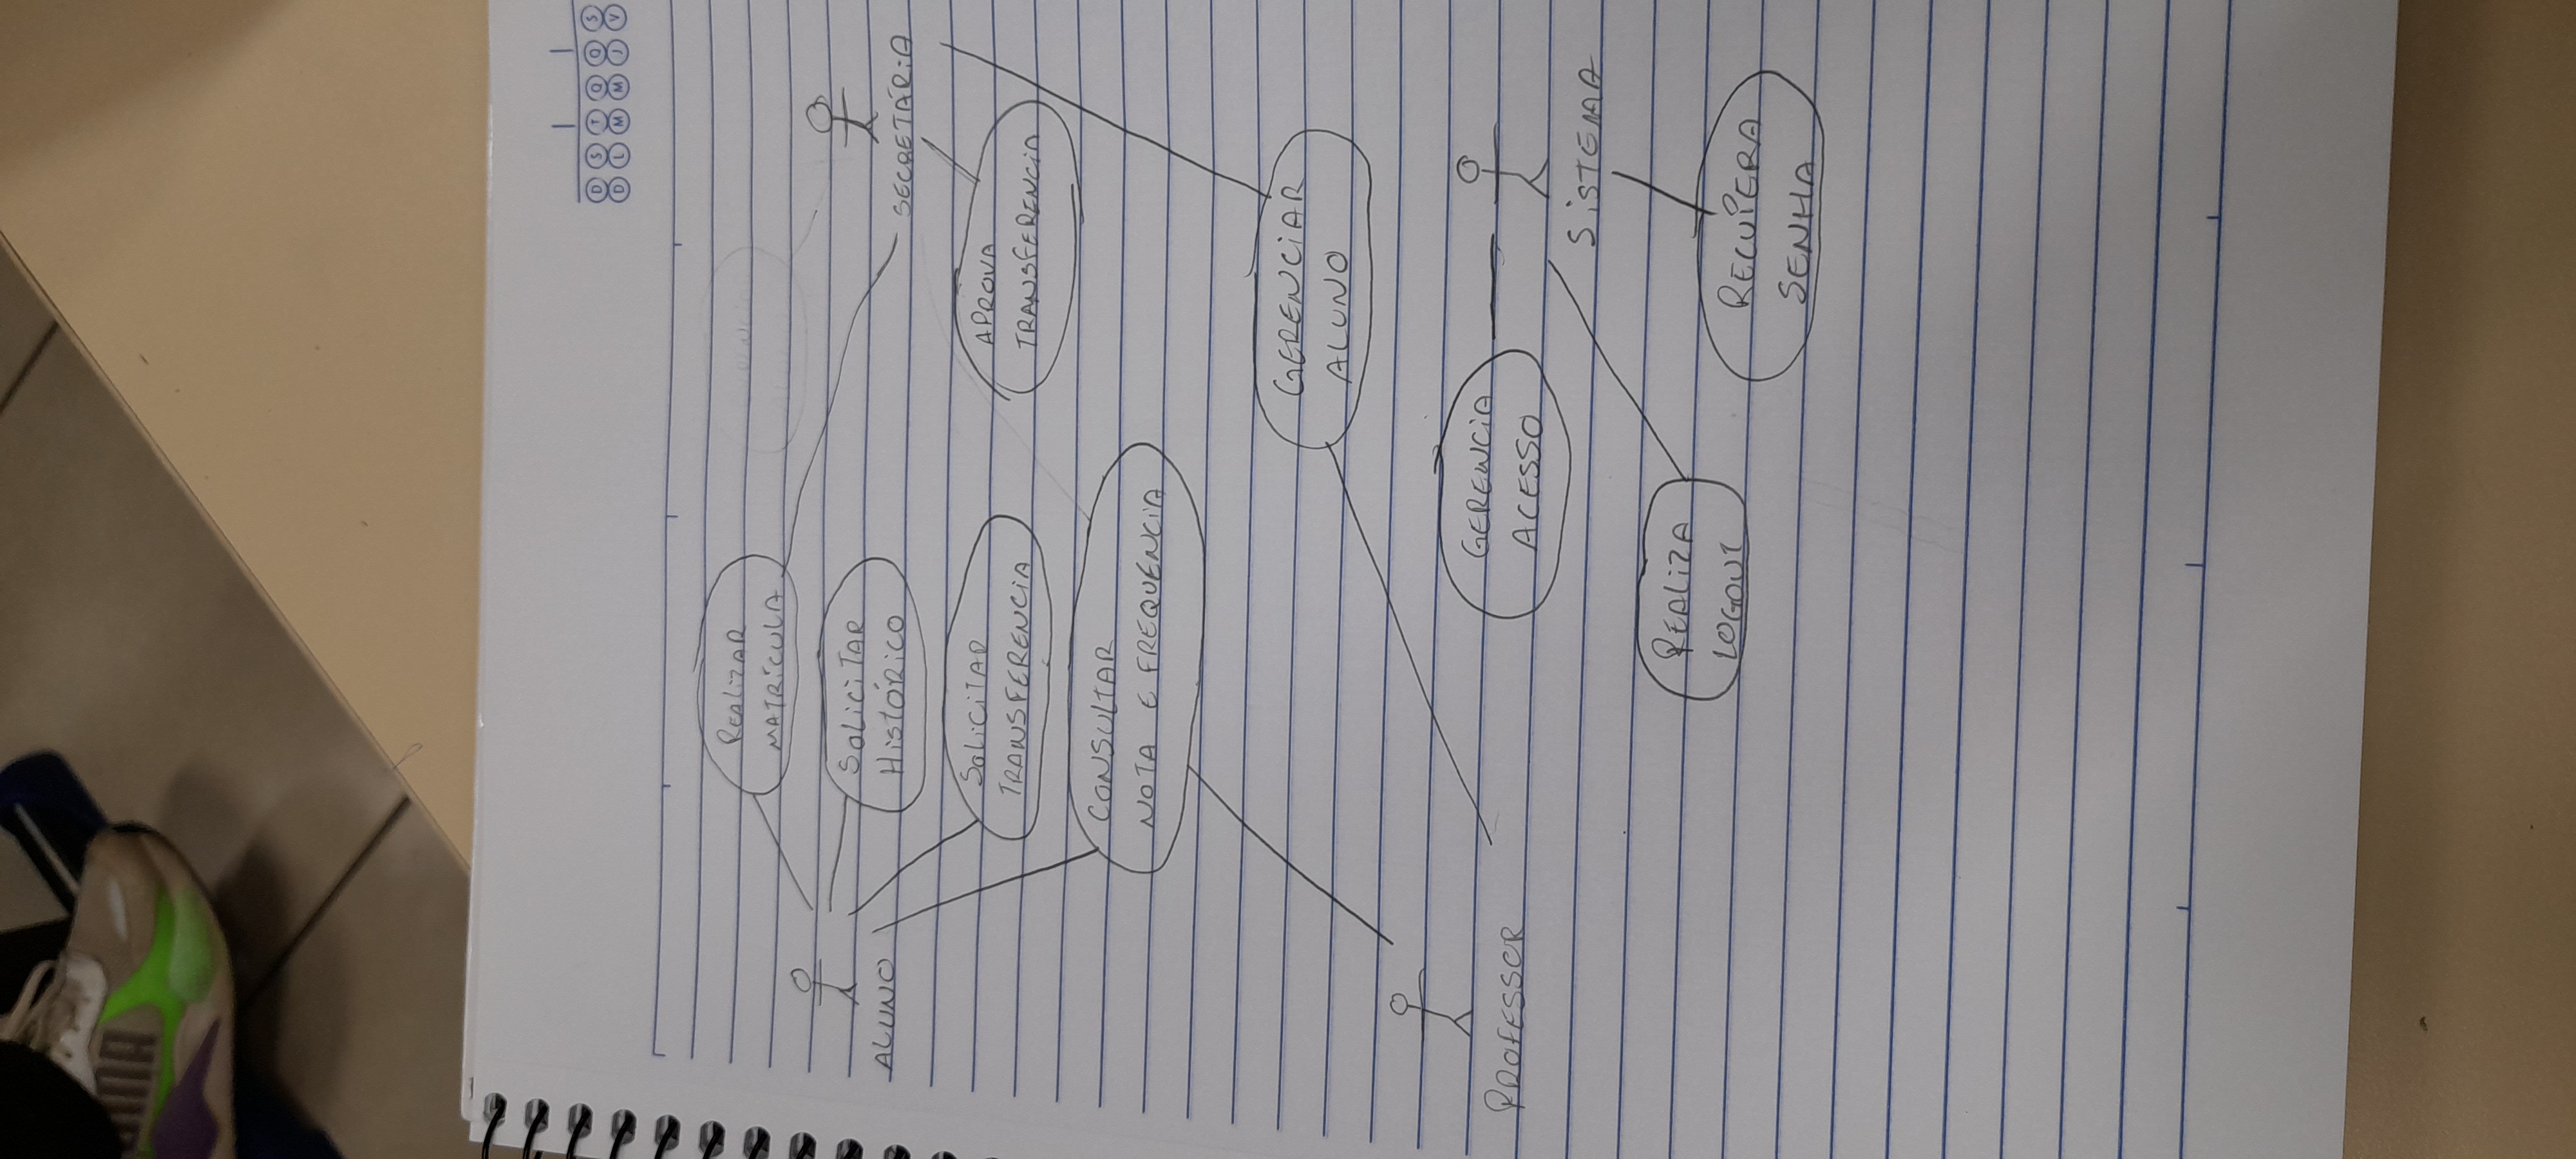 UMA
D S T Q Q S
D L M M J V
REALIZAR
MATRÍCULA
ALUNO
SOLICITAR
HISTÓRICO
SECRETÁRIA
SOLICITAR
TRANSFERENCIA
APROVA
TRANSFERENCIA
CONSULTAR
NOTA E FREQUÊNCIA
GERENCIAR
ALUNO
PROFESSOR
GERENCIA
ACESSO
SISTEMA
REALIZA
LOGOUT
RECUPERA
SENHA